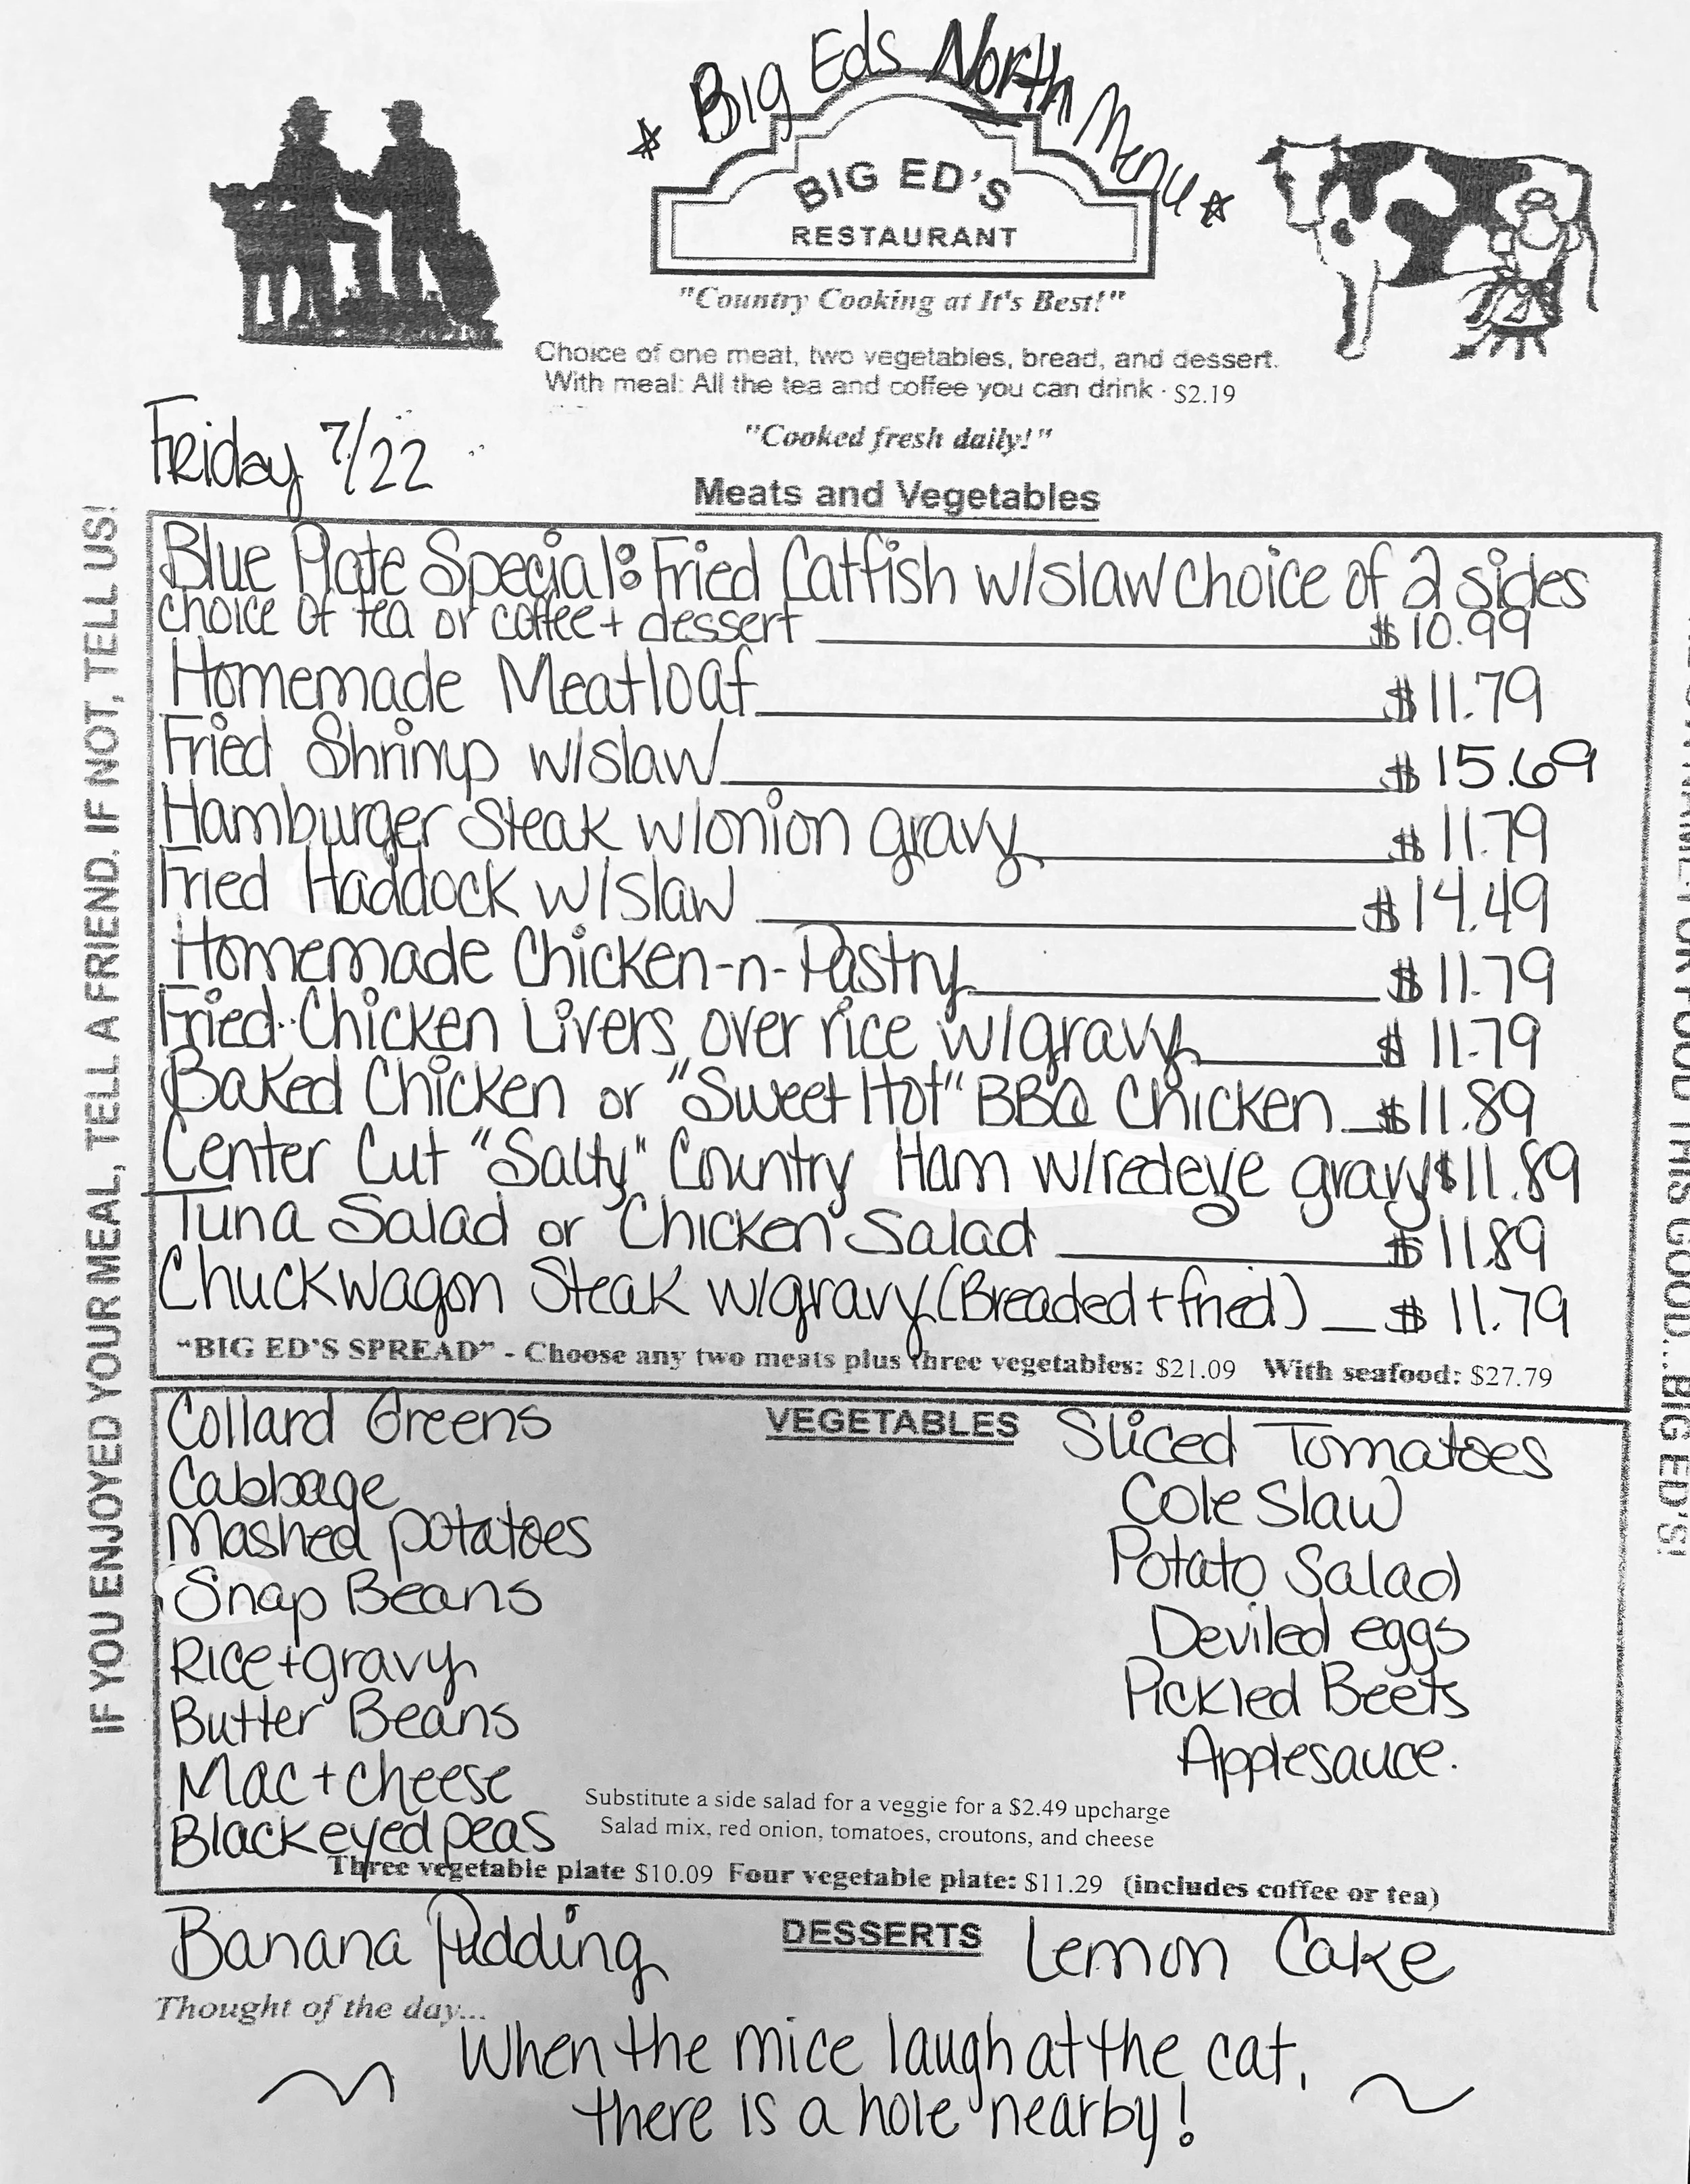 ☆ Big Eds North Menu ☆
BIG ED'S
RESTAURANT
"Country Cooking at It's Best!"
Choice of one meat, two vegetables, bread, and dessert.
With meal: All the tea and coffee you can drink · $2.19
"Cooked fresh daily!"
Friday 7/22
Meats and Vegetables
IF YOU ENJOYED YOUR MEAL, TELL A FRIEND. IF NOT, TELL US!
Blue Plate Special: Fried Catfish w/slaw choice of 2 sides
choice of tea or coffee + dessert $10.99
Homemade Meatloaf $11.79
Fried Shrimp w/slaw $15.69
Hamburger Steak w/onion gravy $11.79
Fried Haddock w/slaw $14.49
Homemade Chicken-n-Pastry $11.79
Fried Chicken Livers over rice w/gravy $11.79
Baked Chicken or "Sweet Hot" BBQ Chicken $11.89
Center Cut "Salty" Country Ham w/redeye gravy $11.89
Tuna Salad or Chicken Salad $11.89
Chuckwagon Steak w/gravy (Breaded + fried) $11.79
"BIG ED'S SPREAD" - Choose any two meats plus three vegetables: $21.09 With seafood: $27.79
VEGETABLES
Collard Greens
Cabbage
Mashed potatoes
Snap Beans
Rice + gravy
Butter Beans
Mac + cheese
Blackeyed peas
Sliced Tomatoes
Cole Slaw
Potato Salad
Deviled eggs
Pickled Beets
Applesauce.
Substitute a side salad for a veggie for a $2.49 upcharge
Salad mix, red onion, tomatoes, croutons, and cheese
Three vegetable plate $10.09 Four vegetable plate: $11.29 (includes coffee or tea)
DESSERTS
Banana Pudding
Lemon Cake
Thought of the day...
When the mice laugh at the cat,
there is a hole nearby!
FOR FOOD THIS GOOD...BIG ED'S!